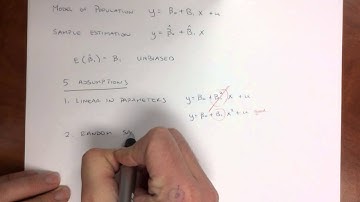 MODEL OF POPULATION y = β₀ + β₁ x + u
SAMPLE ESTIMATION ŷ = β̂₀ + β̂₁ x
E(β̂₁) = β₁ UNBIASED
5 ASSUMPTIONS
1. LINEAR IN PARAMETERS y = β₀ + β₁² x + u
y = β₀ + β₁ x² + u good
2. RANDOM S